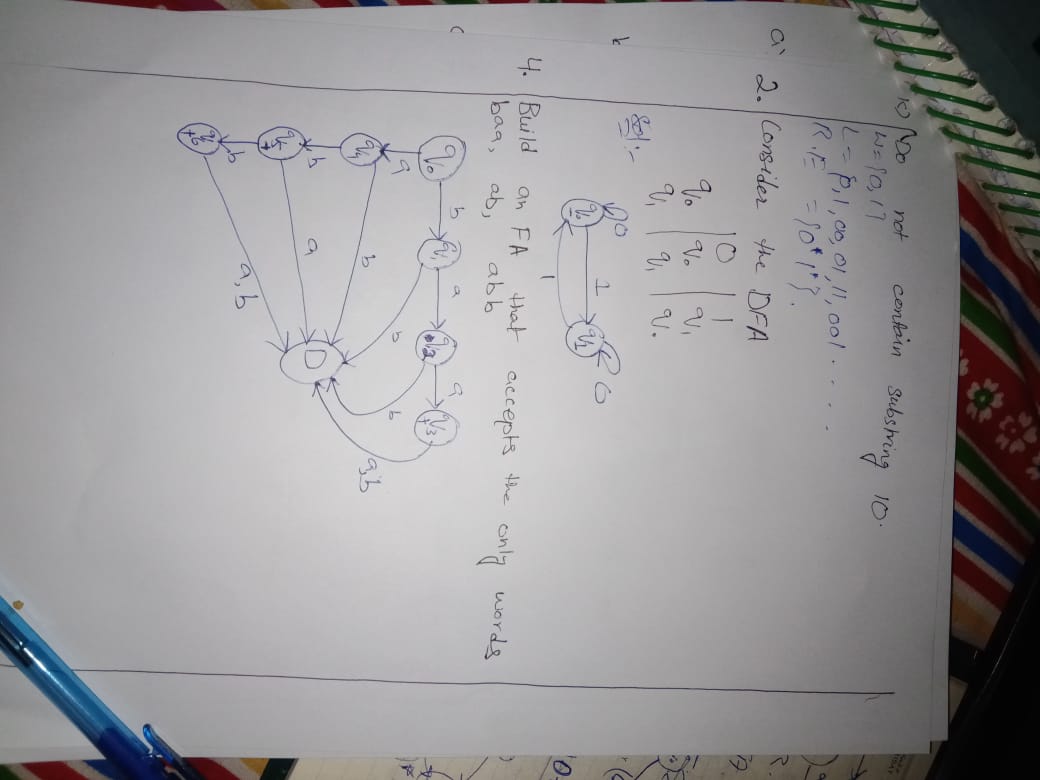 K) Do not contain substring 10.
W={0,1}
L= {0,1,00,01,11,001.....
R.E = {0*1*}.
a
2. Consider the DFA
0 1
q0 q0 q1
q1 q1 q0
Sol:-
0
q0 1 q1 0
1
4. Build an FA that accepts the only words
baa, ab, abb
q0 b q1 a q2 a q3
+
a b b a,b
q4 b
b a D
q5
+
b a,b
q6
+